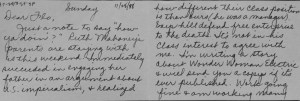 Sunday 11/29/88
Dear Flo,
Just a note to say "how
ya doin'?" Ruth Mahoney's
parents are staying with
us this weekend & immediately
succeeded in engaging her
father in an argument about
U.S. imperialism, & realized
how different their class position
is than ours (he was a manager).
He'll defend free enterprise
to the death. It's not in his
class interest to agree with
me. I'm writing a story
about Wonder Woman Electric
& will send you a copy if it's
ever published. Work's going
fine & am working many